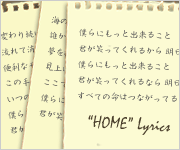 変わり続
流れて消
便利な
この手
いつの
僕ら
君が
海の
誰か
夢を
見上
僕らにもっと出来ること
君が笑ってくれるから 明日
僕らにもっと出来ること
君が笑ってくれるなら 明日
すべての命はつながってる
"HOME" Lyrics